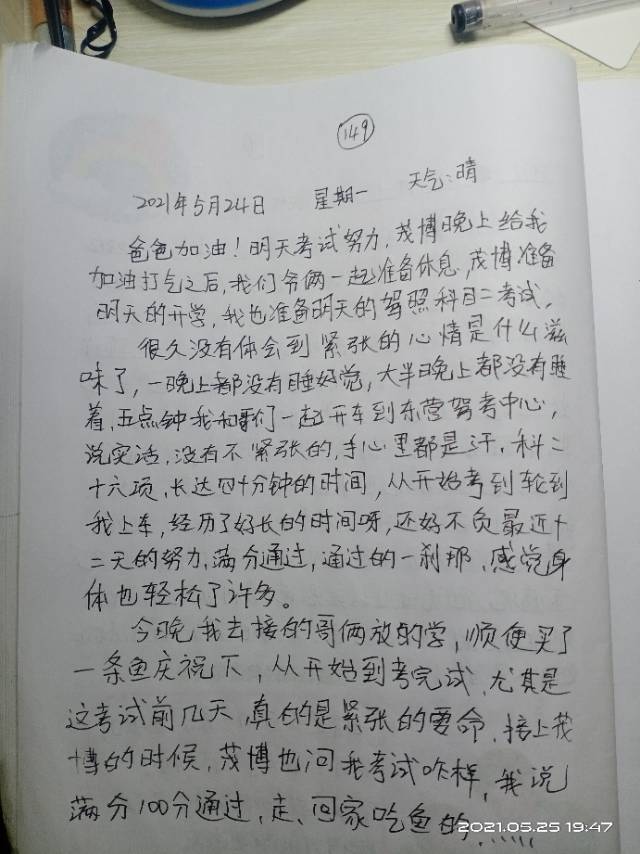 149
2021年5月24日 星期一 天气:晴
爸爸加油!明天考试努力,茂博晚上给我
加油打气之后,我们爷俩一起准备休息,茂博准备
明天的开学,我也准备明天的驾照科目二考试。
很久没有体会到紧张的心情是什么滋
味了,一晚上都没有睡好觉,大半晚上都没有睡
着,五点钟我和哥们一起开车到东营驾考中心,
说实话,没有不紧张的,手心里都是汗,科二
十六项,长达四十分钟的时间,从开始考到轮到
我上车,经历了好长的时间呀,还好不负最近十
二天的努力,满分通过,通过的一刹那,感觉身
体也轻松了许多。
今晚我去接的哥俩放的学,顺便买了
一条鱼庆祝下,从开始到考完试,尤其是
这考试前几天,真的是紧张的要命,接上茂
博的时候,茂博也问我考试咋样,我说
满分100分通过,走、回家吃鱼的......
2021.05.25 19:47